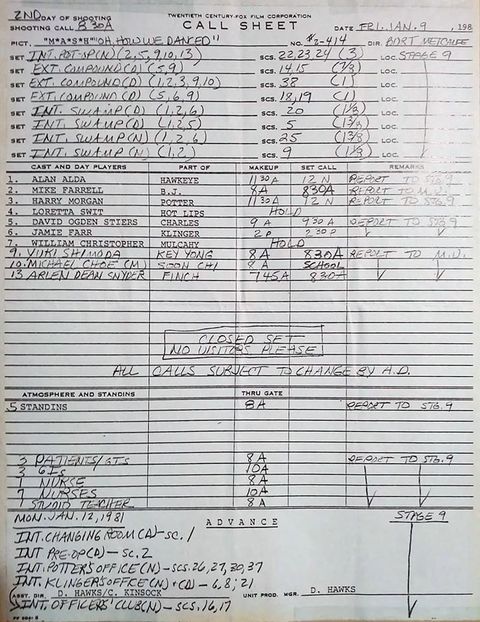 2ND DAY OF SHOOTING TWENTIETH CENTURY-FOX FILM CORPORATION
SHOOTING CALL 830A CALL SHEET DATE FRI. JAN. 9, 198
PICT. "M*A*S*H" "OH, HOW WE DANCED" NO. #Z-414 DIR. BURT METCALFE
SET INT. POST-OP(N) (2,5,9,10,13) SCS. 22,23,24 (3) LOC. STAGE 9
SET EXT. COMPOUND(D) (5,9) SCS. 14,15 LOC.
SET EXT. COMPOUND(D) (1,2,3,9,10) SCS. 38 (1) LOC.
SET EXT. COMPOUND(D) (5,6,9) SCS. 18,19 (1) LOC.
SET INT. SWAMP(D) (1,2,6) SCS. 20 LOC.
SET INT. SWAMP(D) (1,2,5) SCS. 5 LOC.
SET INT. SWAMP(N) (1,2,6) SCS. 25 LOC.
SET INT. SWAMP(N) (1,2) SCS. 9 LOC.
CAST AND DAY PLAYERS PART OF MAKEUP SET CALL REMARKS
1. ALAN ALDA HAWKEYE 1130A 12N REPORT TO STG.9
2. MIKE FARRELL B.J. 8A 830A REPORT TO M.U.
3. HARRY MORGAN POTTER 1130A 12N REPORT TO STG.9
4. LORETTA SWIT HOT LIPS HOLD
5. DAVID OGDEN STIERS CHARLES 9A 930A REPORT TO STG.9
6. JAMIE FARR KLINGER 2P 230P
7. WILLIAM CHRISTOPHER MULCAHY HOLD
9. YUKI SHIMODA KEY YONG 8A 830A REPORT TO M.U.
10. MICHAEL CHOE (M) SOON CHI 8A SCHOOL
13 ARLEN DEAN SNYDER FINCH 745A 830A
CLOSED SET
NO VISITORS PLEASE
ALL CALLS SUBJECT TO CHANGE BY A.D.
ATMOSPHERE AND STANDINS THRU GATE
5 STANDINS 8A REPORT TO STG.9
3 PATIENTS/GIS 8A REPORT TO STG.9
3 GIS 10A
1 NURSE 8A
7 NURSES 10A
1 STUDIO TEACHER 8A
MON. JAN. 12, 1981 ADVANCE STAGE 9
INT. CHANGING ROOM(D)-SC. 1
INT PRE-OP(D)-SC. 2
INT. POTTER'S OFFICE(N)-SCS. 26,27,30,37
INT. KLINGER'S OFFICE(N)+(D)-6,8,21
ASST. DIR. D. HAWKS/C. KINSOCK UNIT PROD. MGR. D. HAWKS
INT. OFFICERS' CLUB(N)-SCS. 16,17